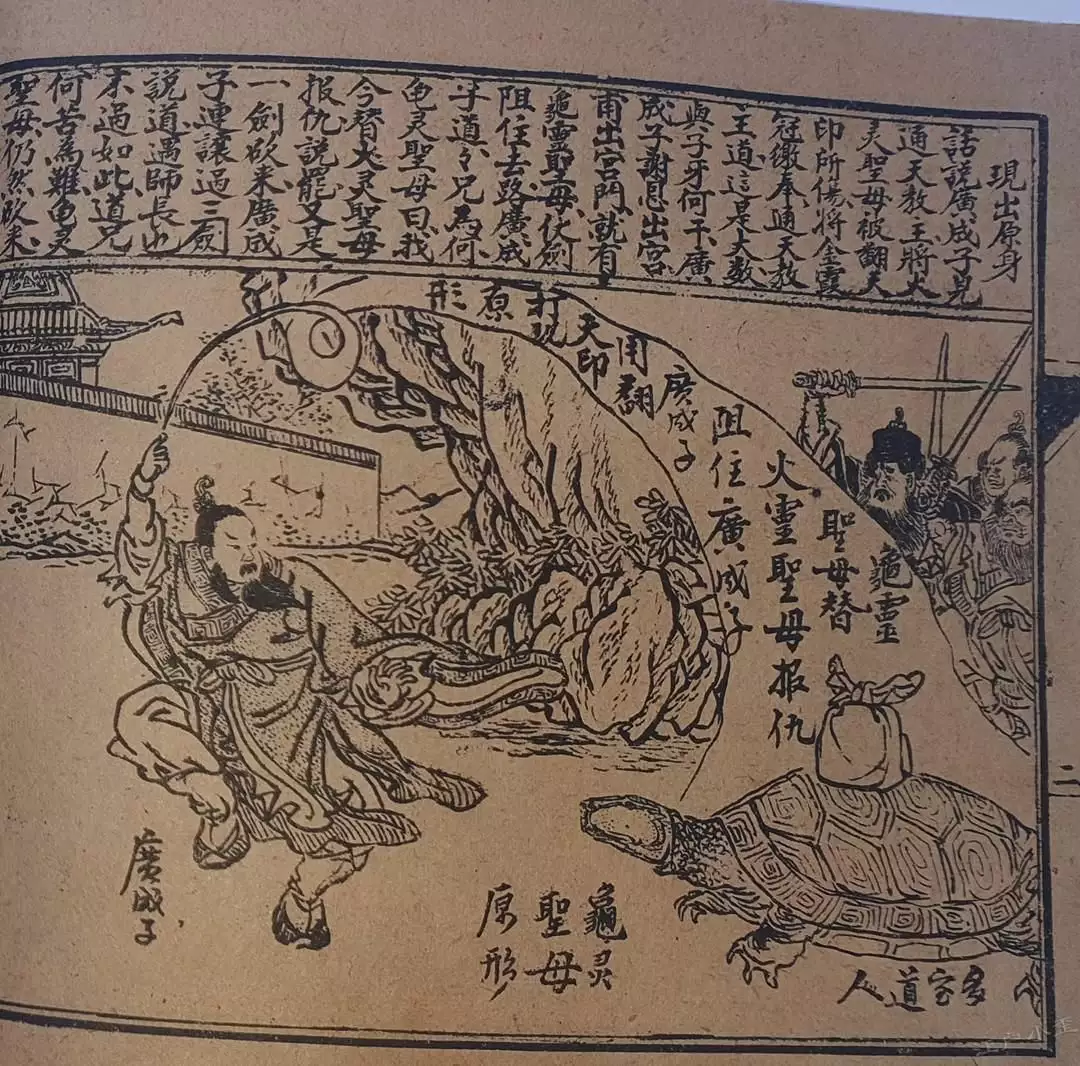 現出原身
話說廣成子見
通天教主將火
灵聖母被翻天
印所傷將金霞
冠繳奉通天教
主道這是大数
與子牙何干廣
成子謝恩出宮
甫出宮門就有
龜靈聖母仗劍
阻住去路廣成
子道々兄為何
龟灵聖母曰我
今替火灵聖母
报仇說罷又是
一劍砍来廣成
子連讓過三劍
說道遇師長也
不過如此道兄
何苦為難龟灵
聖母仍然砍来
龜靈
聖母替
火靈聖母报仇
阻住廣成子
廣成子
用翻
天印
打現
原
形
多宝道人
龜灵
聖母
原形
廣成子
二